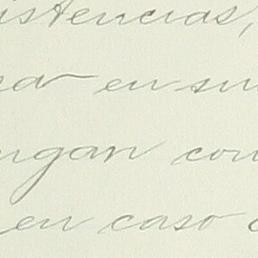 istencias,
en su
ngan con
en caso